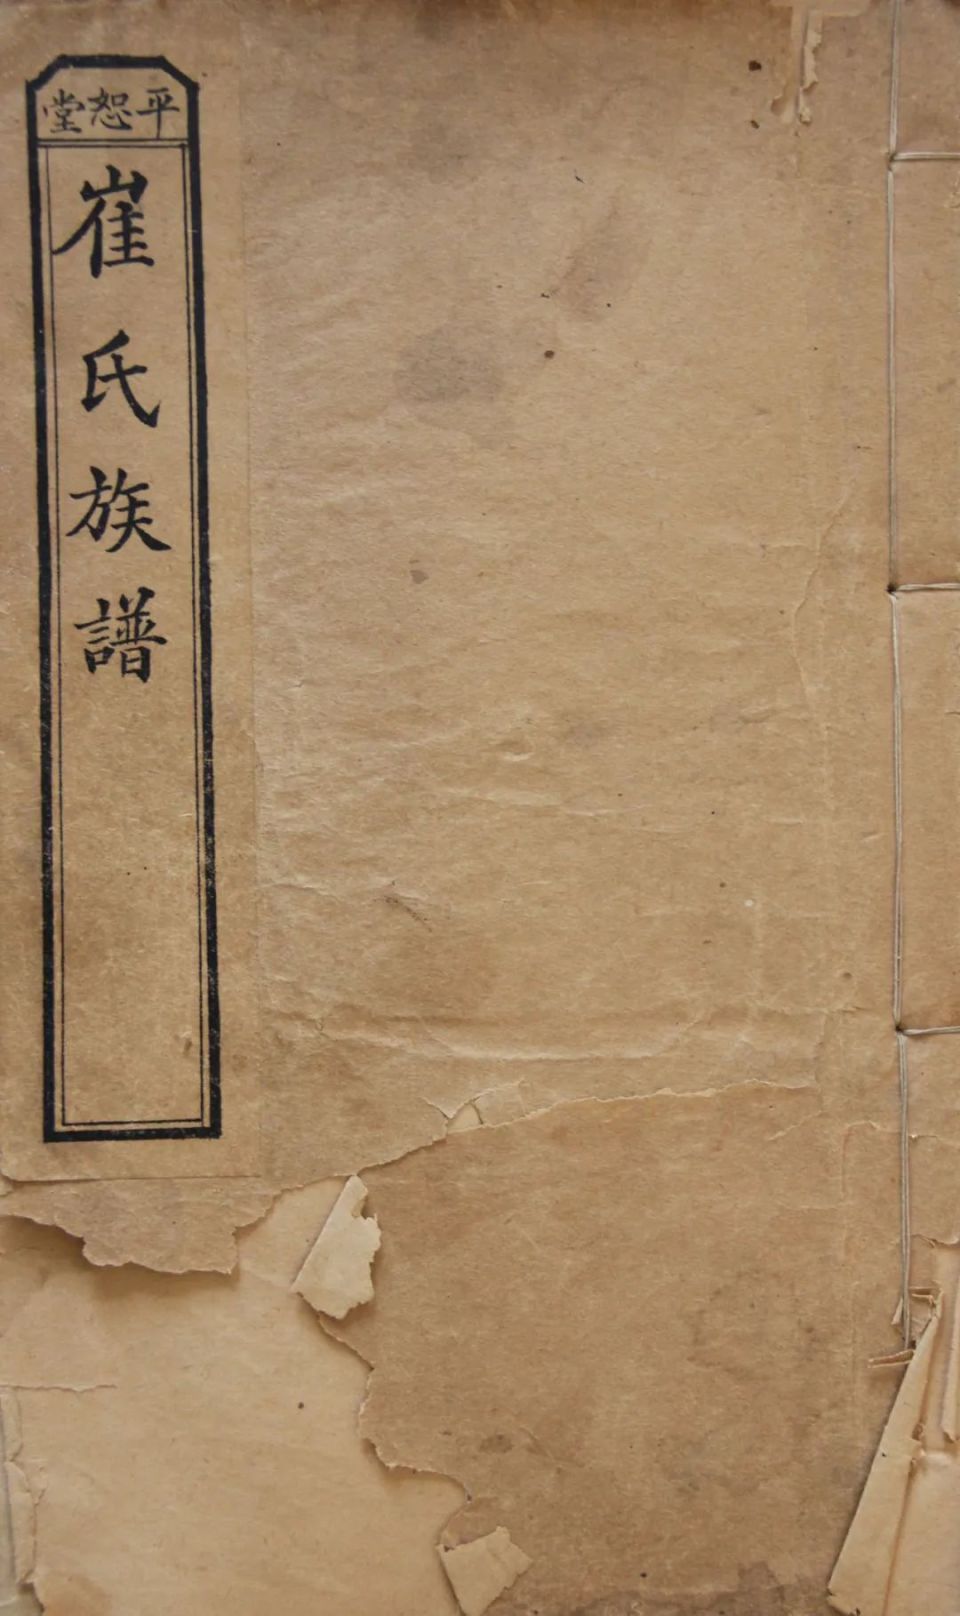 平恕堂
崔氏族譜